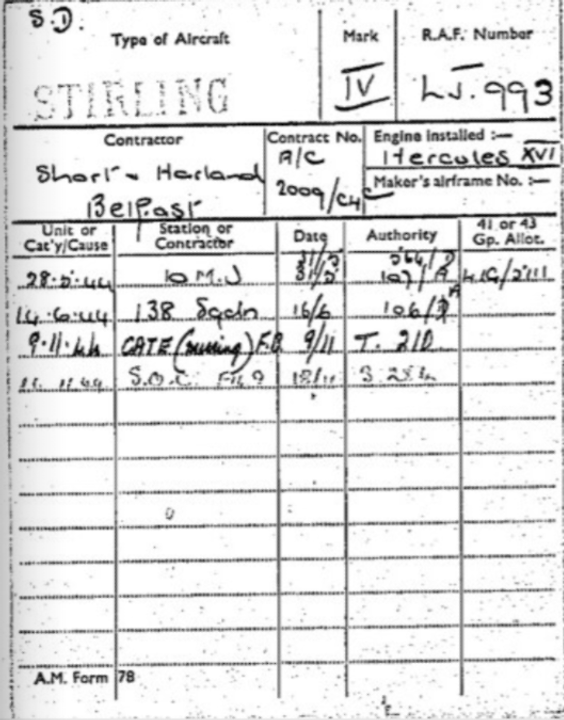 S.D.
Type of Aircraft Mark R.A.F. Number
STIRLING IV LJ.993
Contractor Contract No. Engine installed :—
Short & Harland A/C Hercules XVI
Belfast 2009/C4/C Maker's airframe No. :—
Unit or Cat'y/Cause Station or Contractor Date Authority 41 or 43 Gp. Allot.
31/5
28.5.44 10 M.U 31/5 107/A 41G/
14.6.44 138 Sqdn 16/6 106/ A
9.11.44 CAT E (missing) F.B 9/11 T. 210
11.44 S.O.C. 18/11
A.M. Form 78